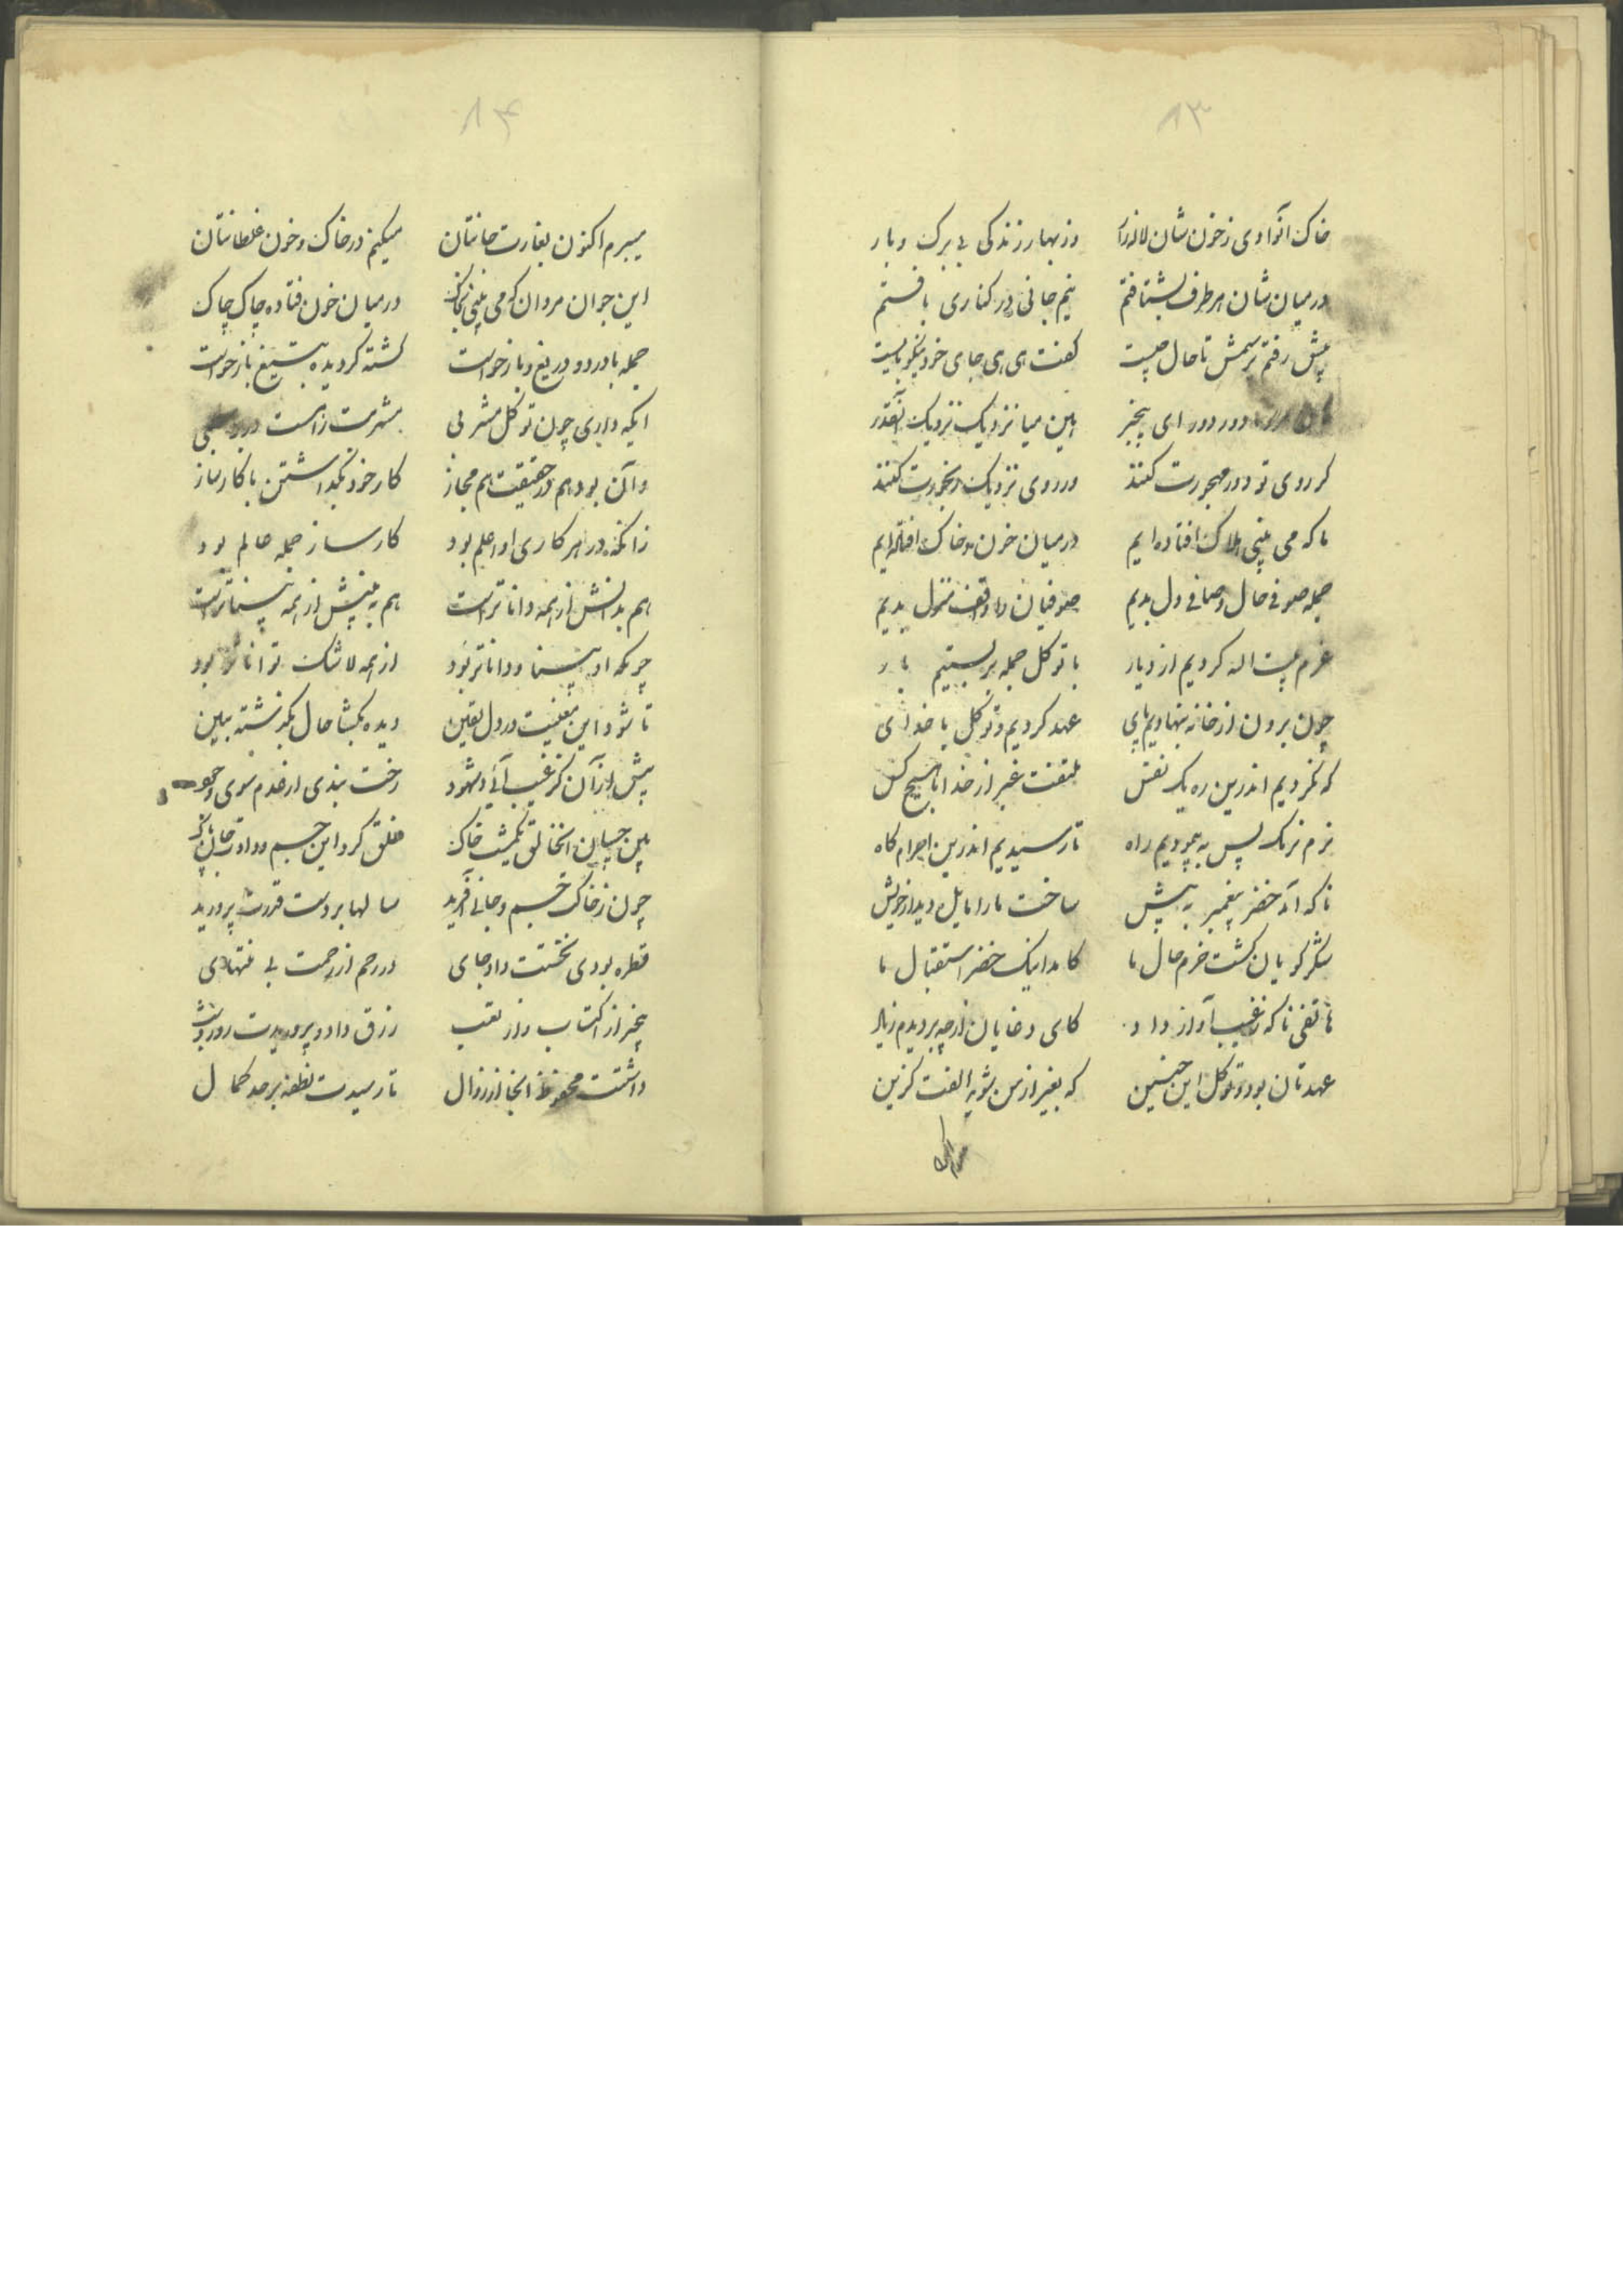 ۸۳
خاک آنوادی ز خون شان لاله زار وز بهار زندگی بی برک و بار
در میان شان هر طرف بشتافتم نیم جانی در کناری یافتم
پیش رفتم پرسمش تا حال چیست کفت ای ای جای خود نیکو بایست
دور دور ای بیخبر هین میا نزدیک نزدیک آنقدر
کر روی تو دور مهجورت کنند ور روی نزدیک رنجورت کنند
ما که می بینی هلاک افتاده ایم در میان خون و خاک افتاده ایم
جمله صوفی حال و صافی دل بدیم صوفیان را واقف منزل بدیم
عزم بیت الله کردیم از دیار با توکل جمله بر بستیم بار
چون برون از خانه بنهادیم پای عهد کردیم و توکل با خدای
که نکردیم اندرین ره یک نفس ملتفت غیر از خدا با هیچ کس
نرم نرمک پس به پیمودیم راه تا رسیدیم اندرین احرام کاه
ناکه آمد خضر پیغمبر به پیش ساخت ما را مایل دیدار خویش
شکر کویان کشت خرم حال ما کامد اینک خضر استقبال ما
هاتفی ناکه ز غیب آواز داد کای دغایان از چه بردیدم ز یاد
عهدتان بود و توکل این چنین که بغیر از من شوید الفت کزین
میبرم
۸۴
میبرم اکنون بغارت جانتان میکنم در خاک و خون غلطانتان
این جوان مردان که می بینی بخاک در میان خون فتاده چاک چاک
جمله با درد و دریغ و بازخواست کشته کردیده بتیغ بازخواست
ایکه داری چون توکل مشربی مشربت راهست در
وآن بود هم در حقیقت هم مجاز کار خود نکداشتن با کارساز
زانکه در هر کاری او اعلم بود کارساز جمله عالم بود
هم بدانش از همه داناتر است هم به بینش از همه بیناتر است
چونکه او بینا و داناتر بود از همه لاشک تواناتر بود
تا شود این معنیت در دل یقین دیده بکشا حال بکذشته ببین
پیش از آن کز غیب آئی در شهود رخت بندی از عدم سوی وجود
بین چسان آنخالق یکمشت خاک خلق کرد این جسم و دادت جان پاک
چون ز خاک جسم و جانی آفرید سالها بر دست قدرت پرورید
قطره بودی نخستت داد جای در رحم از رحمت بی منتهای
بیخبر از اکتساب و از تعب رزق داد و پروریدت روز و شب
داشتت محفوظ آنجا از زوال تا رسیدت نطفه بر حد کمال